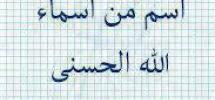 اسم من اسماء
الله الحسنى